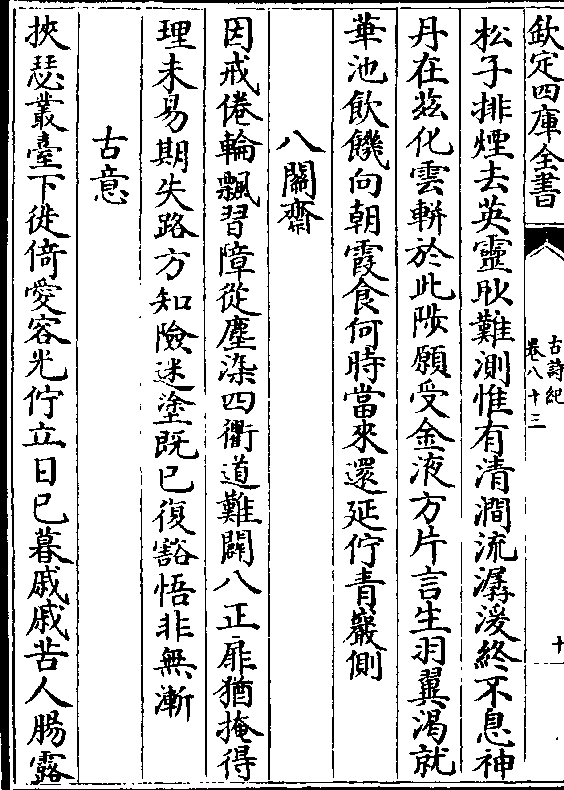 欽定四庫全書
古詩紀
卷八十三
十
松子排煙去英靈眇難測惟有清澗流潺湲終不息神
丹在茲化雲軿於此陟願受金液方片言生羽翼渴就
華池飲饑向朝霞食何時當來還延佇青巖側
八關齋
因戒倦輪飄習障從塵染四衢道難闢八正扉猶掩得
理未易期失路方知險迷塗既已復豁悟非無漸
古意
挾瑟叢臺下徙倚愛容光佇立日已暮戚戚苦人腸露